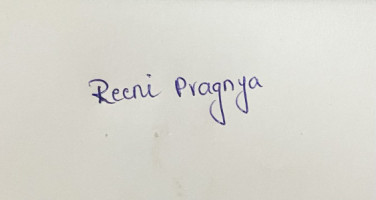 Reeni Pragnya